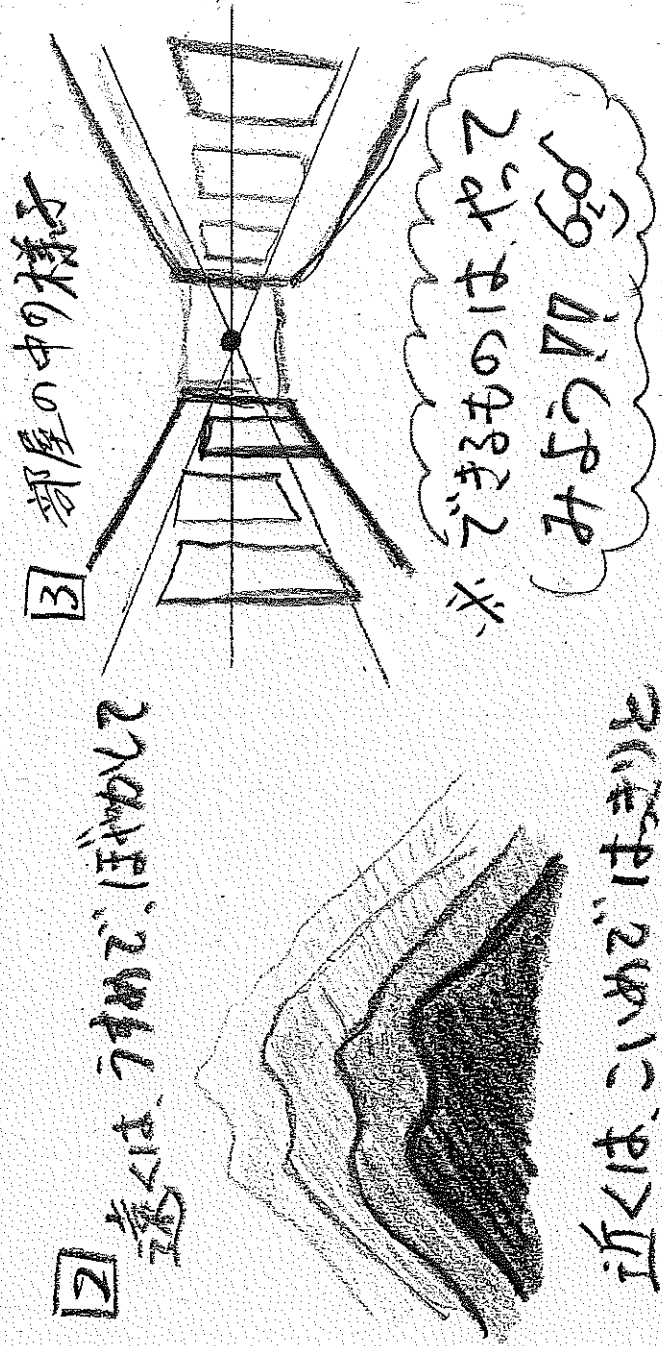 2
遠くは、うすめで、ぼやかして
近くは、こいめで、はっきりと
3 部屋の中の様子
※できるものは、やって
みよう!!